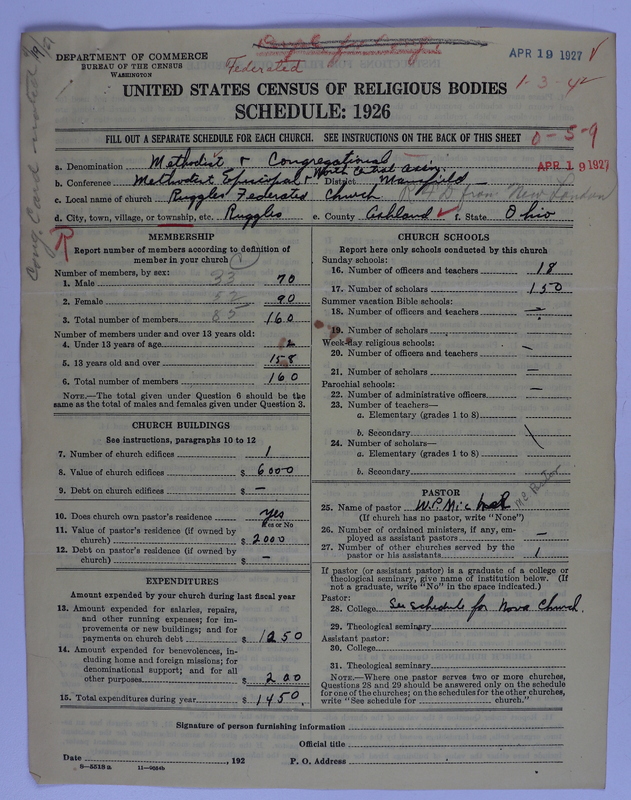 APR 19 1927
DEPARTMENT OF COMMERCE
BUREAU OF THE CENSUS
WASHINGTON
Federated
UNITED STATES CENSUS OF RELIGIOUS BODIES
1-3-42
SCHEDULE: 1926
FILL OUT A SEPARATE SCHEDULE FOR EACH CHURCH. SEE INSTRUCTIONS ON THE BACK OF THIS SHEET
0-5-9
APR 19 1927
a. Denomination Methodist & Congregational
b. Conference Methodist Episcopal & North Central Assn. District Mansfield
c. Local name of church Ruggles Federated Church from New London
d. City, town, village, or township, etc. Ruggles e. County Ashland f. State Ohio
R
MEMBERSHIP
Report number of members according to definition of
member in your church
Number of members, by sex:
1. Male 33 70
2. Female 52 90
3. Total number of members 85 160
Number of members under and over 13 years old:
4. Under 13 years of age 2
5. 13 years old and over 158
6. Total number of members 160
NOTE.—The total given under Question 6 should be the
same as the total of males and females given under Question 3.
CHURCH BUILDINGS
See instructions, paragraphs 10 to 12
7. Number of church edifices 1
8. Value of church edifices $ 6000
9. Debt on church edifices $ —
10. Does church own pastor's residence yes
Yes or No
11. Value of pastor's residence (if owned by
church) $ 2000
12. Debt on pastor's residence (if owned by
church) $ —
EXPENDITURES
Amount expended by your church during last fiscal year
13. Amount expended for salaries, repairs,
and other running expenses; for im-
provements or new buildings; and for
payments on church debt $ 1250
14. Amount expended for benevolences, in-
cluding home and foreign missions; for
denominational support; and for all
other purposes $ 200
15. Total expenditures during year $ 1450.
CHURCH SCHOOLS
Report here only schools conducted by this church
Sunday schools:
16. Number of officers and teachers 18
17. Number of scholars 150
Summer vacation Bible schools:
18. Number of officers and teachers —
19. Number of scholars
Week-day religious schools:
20. Number of officers and teachers —
21. Number of scholars —
Parochial schools:
22. Number of administrative officers —
23. Number of teachers—
a. Elementary (grades 1 to 8)
b. Secondary
24. Number of scholars—
a. Elementary (grades 1 to 8)
b. Secondary
PASTOR
25. Name of pastor W.P.
(If church has no pastor, write "None")
26. Number of ordained ministers, if any, em-
ployed as assistant pastors —
27. Number of other churches served by the
pastor or his assistants 1
If pastor (or assistant pastor) is a graduate of a college or
theological seminary, give name of institution below. (If
not a graduate, write "No" in the space indicated.)
Pastor:
28. College See schedule for Nova Church.
29. Theological seminary
Assistant pastor:
30. College
31. Theological seminary
NOTE.—Where one pastor serves two or more churches,
Questions 28 and 29 should be answered only on the schedule
for one of the churches; on the schedules for the other churches,
write "See schedule for church."
Signature of person furnishing information
Official title
Date , 192 P. O. Address
8—5518a 11—9064b